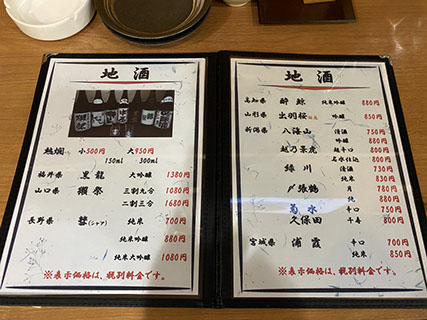 地酒
越燗 小500円 大950円
150ml 300ml
福井県 黒龍 大吟醸 1380円
山口県 獺祭 三割九分 1080円
二割三分 1680円
長野県 彗(シャア) 純米 700円
純米吟醸 880円
純米大吟醸 1080円
※表示価格は、税別料金です。
地酒
高知県 酔鯨 純米吟醸 880円
山形県 出羽桜 吟醸 850円
新潟県 八海山 清酒 750円
越乃景虎 超辛口 780円
名水仕込 800円
緑川 清酒 750円
純米 830円
〆張鶴 月 780円
純 880円
菊水 辛口 750円
久保田 千寿 800円
宮城県 浦霞 辛口 700円
純米 850円
※表示価格は、税別料金です。